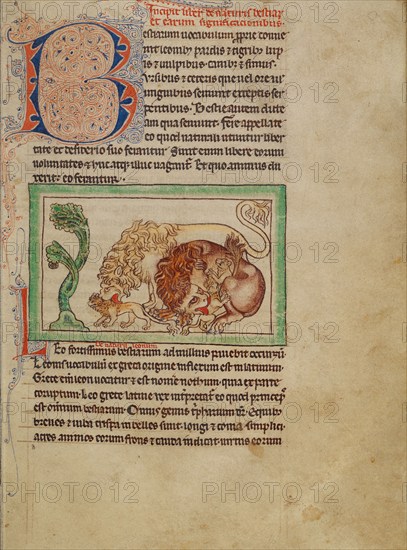 Incipit liber de naturis bestiar
et earum significacionibus
Bestiarum uocabulum proprie conue
nit leonib; pardis et tigrib; lup
is et uulpibus canib; et simiis
Ursibus et ceteris que uel ore uel
unguibus seuiunt exceptis ser
pentibus. Bestie autem dicte
a ui qua seuiunt. Fere appellate
eo quod naturali utuntur liber
tate et desiderio suo ferantur. Sunt enim libere eorum
uoluntates et huc atq; illuc uagantur. Et quo animus du
xerit eo feruntur.
De natura leonum
Leo fortissimus bestiarum ad nullius pauebit occursum.
Leonis uocabulum ex greca origine inflexum est in latinum
Grece enim leon uocatur et est nomen nothum quia ex parte
corruptum. Leo grece latine rex interpretatur eo quod princeps
est omnium bestiarum. Cuius genus tripharium dicitur. E quibus
breues et iuba crispa imbelles sunt. longi et coma simplici
acres animos eorum frons et cauda indicat uirtus eorum
PHOTO 12